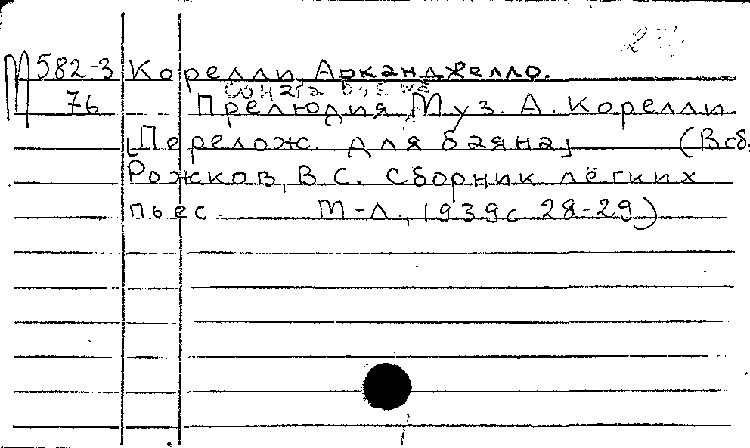 М 582-3 Корелли, Арканджелло.
соната
76 Прелюдия. Муз. А. Корелли
[Перелож. для баяна] (В сб.
Рожков, В. С. Сборник лёгких
пьес М-Л., 1939 с 28-29)